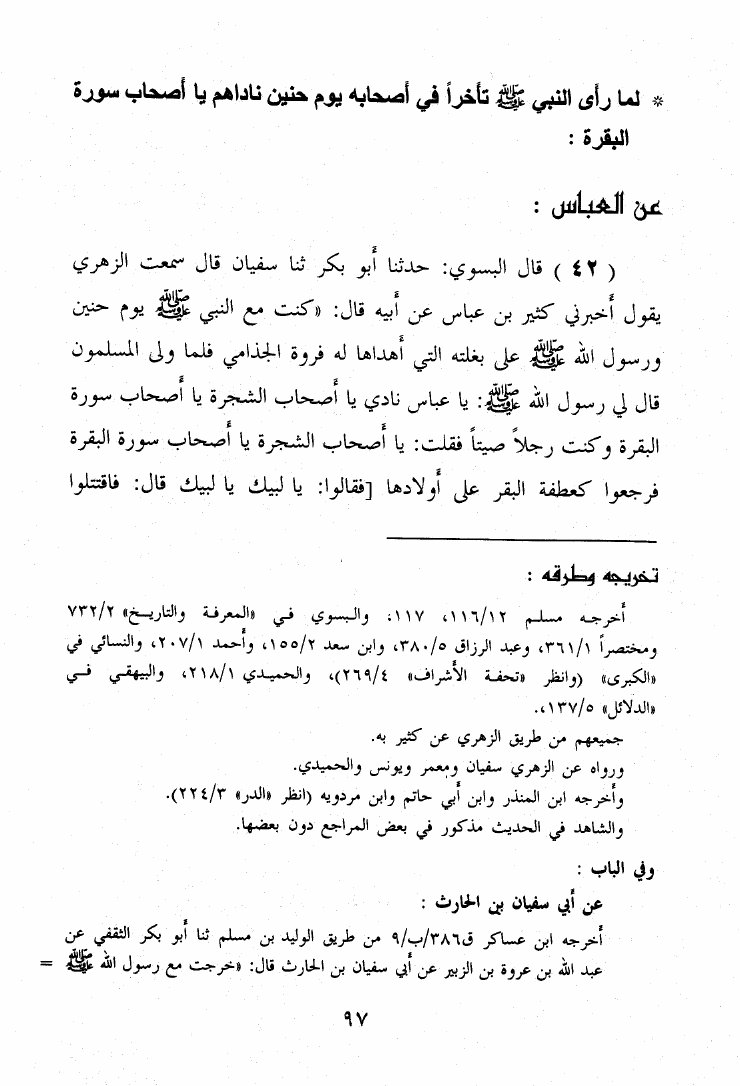 * لما رأى النبي ﷺ تأخراً في أصحابه يوم حنين ناداهم يا أصحاب سورة
البقرة :
عن العباس :
( ٤٢ ) قال البسوي: حدثنا أبو بكر ثنا سفيان قال سمعت الزهري
يقول أخبرني كثير بن عباس عن أبيه قال: «كنت مع النبي ﷺ يوم حنين
ورسول الله ﷺ على بغلته التي أهداها له فروة الجذامي فلما ولى المسلمون
قال لي رسول الله ﷺ: يا عباس نادي يا أصحاب الشجرة يا أصحاب سورة
البقرة وكنت رجلاً صيتاً فقلت: يا أصحاب الشجرة يا أصحاب سورة البقرة
فرجعوا كعطفة البقر على أولادها [فقالوا: يا لبيك يا لبيك قال: فاقتتلوا
تخريجه وطرقه :
أخرجه مسلم ١١٦/١٢، ١١٧، والبسوي في «المعرفة والتاريخ» ٧٣٢/٢
ومختصراً ٣٦١/١، وعبد الرزاق ٣٨٠/٥، وابن سعد ١٥٥/٢، وأحمد ٢٠٧/١، والنسائي في
«الكبرى» (وانظر «تحفة الأشراف» ٢٦٩/٤)، والحميدي ٢١٨/١، والبيهقي في
«الدلائل» ١٣٧/٥،.
جميعهم من طريق الزهري عن كثير به.
ورواه عن الزهري سفيان ومعمر ويونس والحميدي.
وأخرجه ابن المنذر وابن أبي حاتم وابن مردويه (انظر «الدر» ٢٢٤/٣).
والشاهد في الحديث مذكور في بعض المراجع دون بعضها.
وفي الباب :
عن أبي سفيان بن الحارث :
أخرجه ابن عساكر ق٣٨٦/ب/٩ من طريق الوليد بن مسلم ثنا أبو بكر الثقفي عن
عبد الله بن عروة بن الزبير عن أبي سفيان بن الحارث قال: «خرجت مع رسول الله ﷺ =
٩٧